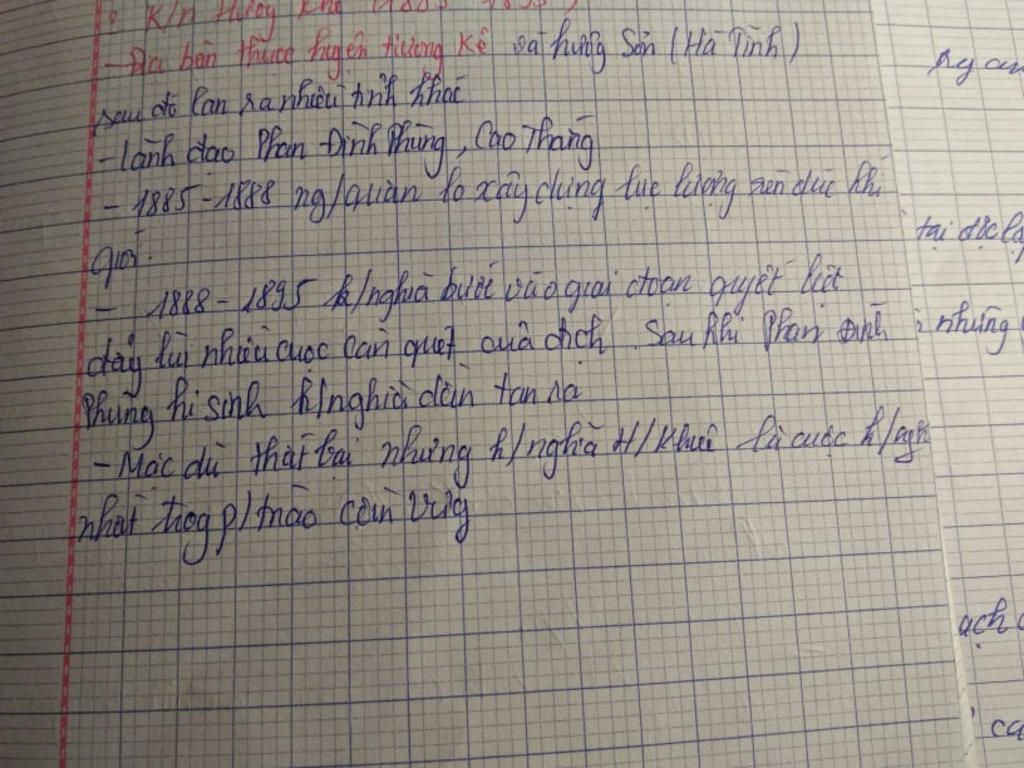 K/n Hương Khê (1885 - 1895)
- Địa bàn thuộc huyện Hương Kê và hương Sơn (Hà Tĩnh)
sau đó lan ra nhiều tỉnh khác
- lãnh đạo Phan Đình Phùng, Cao Thắng
- 1885 - 1888 ng/quân lo xây dựng lực lượng rèn đúc khí
giới.
- 1888 - 1895 k/nghĩa bước vào giai đoạn quyết liệt
đẩy lùi nhiều cuộc càn quét của địch. Sau khi Phan Đình
Phùng hi sinh k/nghĩa dần tan rã
- Mặc dù thất bại nhưng k/nghĩa H/Khuê là cuộc k/ngh
nhất trog p/trào cần vương
tại độc lậ
những
ạch
ca